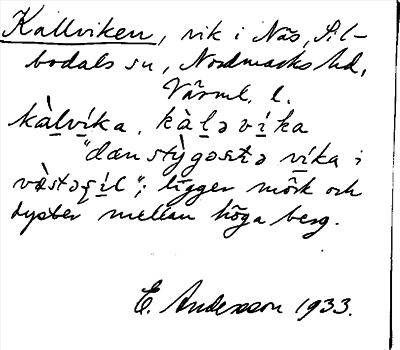 Kallviken, vik i Näs, Sil-
bodals sn, Nordmarks hd,
Värml. l.
kàlvíka, kàlə víka
"dæn stỳgəstə víka i
væ̀stəʂíl"; ligger mörk och
dyster mellan höga berg.
E. Andersson 1933.